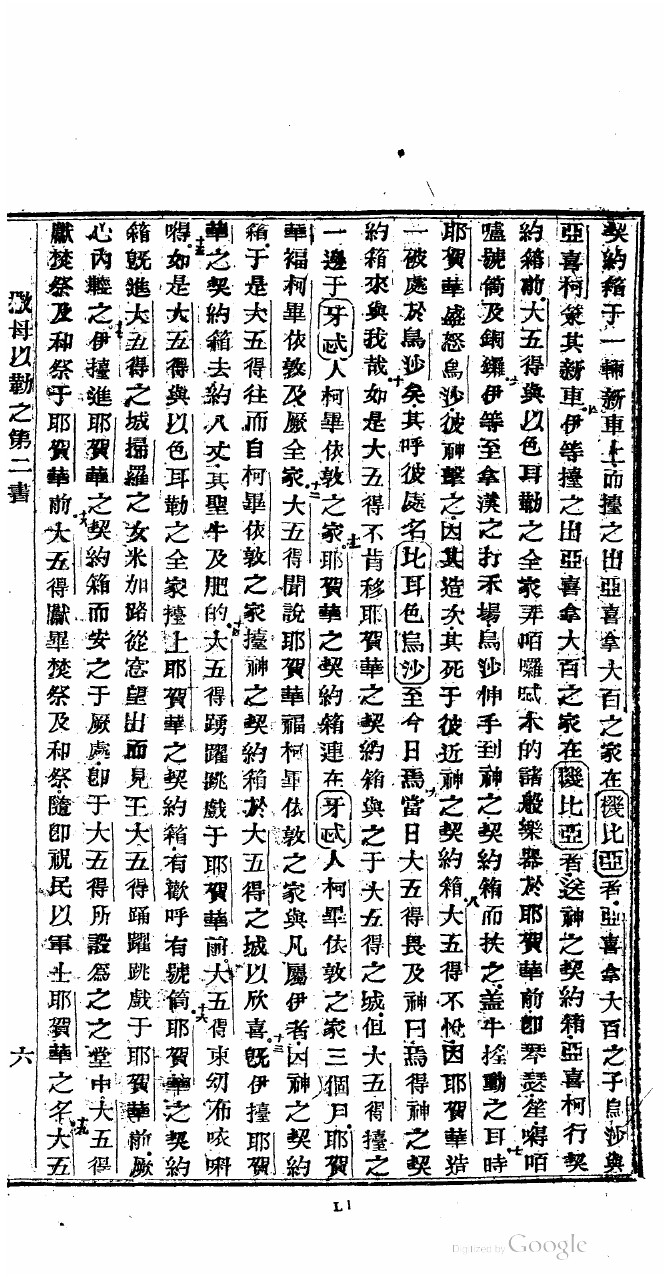 契約箱于一輛新車上而擡之出亞喜拿大百之家在機比亞者亞喜拿大百之子烏沙與
亞喜柯策其新車伊等擡之出亞喜拿大百之家在機比亞者送神之契約箱亞喜柯行契
約箱前大五得與以色耳勒之全家弄咟囉木的諸般樂器於耶賀華前即琴瑟笙嘚咟
嚧號筒及銅鑼伊等至拿漢之打禾場烏沙伸手到神之契約箱而扶之蓋牛搖動之耳時
耶賀華盛怒烏沙彼神擊之因其造次其死于彼近神之契約箱大五得不悅因耶賀華造
一被處於烏沙矣其呼彼處名比耳色烏沙至今日焉當日大五得畏及神曰焉得神之契
約箱來與我哉如是大五得不肯移耶賀華之契約箱與之于大五得之城但大五得擡之
一邊于牙忒人柯畢依敦之家耶賀華之契約箱連在牙忒人柯畢依敦之家三個月耶賀
華福柯畢依敦及厥全家大五得聞說耶賀華福柯畢依敦之家與凡屬伊者因神之契約
箱于是大五得往而自柯畢依敦之家擡神之契約箱於大五得之城以欣喜旣伊擡耶賀
華之契約箱去約八丈其聖牛及肥的大五得踴躍跳戲于耶賀華前大五得束幼布唻唎
嘚如是大五得與以色耳勒之全家擡上耶賀華之契約箱有歡呼有號筒耶賀華之契約
箱旣進大五得之城掃羅之女米加路從窓望出而見王大五得踊躍跳戲于耶賀華前厥
心內輕之伊擡進耶賀華之契約箱而安之于厥處即于大五得所設爲之之堂中大五得
獻焚祭及和祭于耶賀華前大五得獻畢焚祭及和祭隨即祝民以軍士耶賀華之名大五
母以勒之第二書
六
L1
Digitized by Google